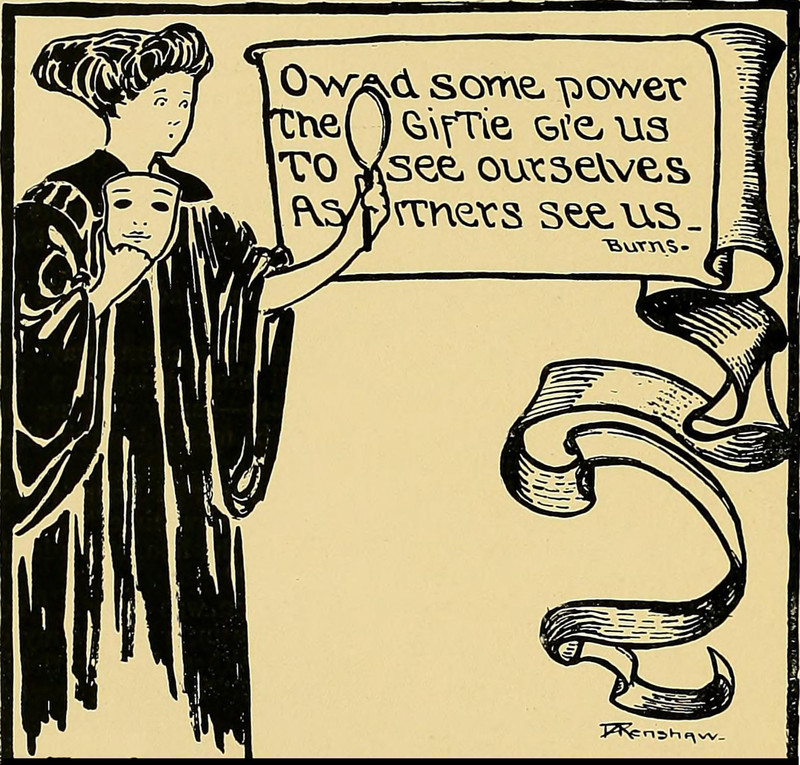 O wad some power
The Giftie Gi'e us
To see ourselves
As ithers see us_
Burns-
Renshaw-